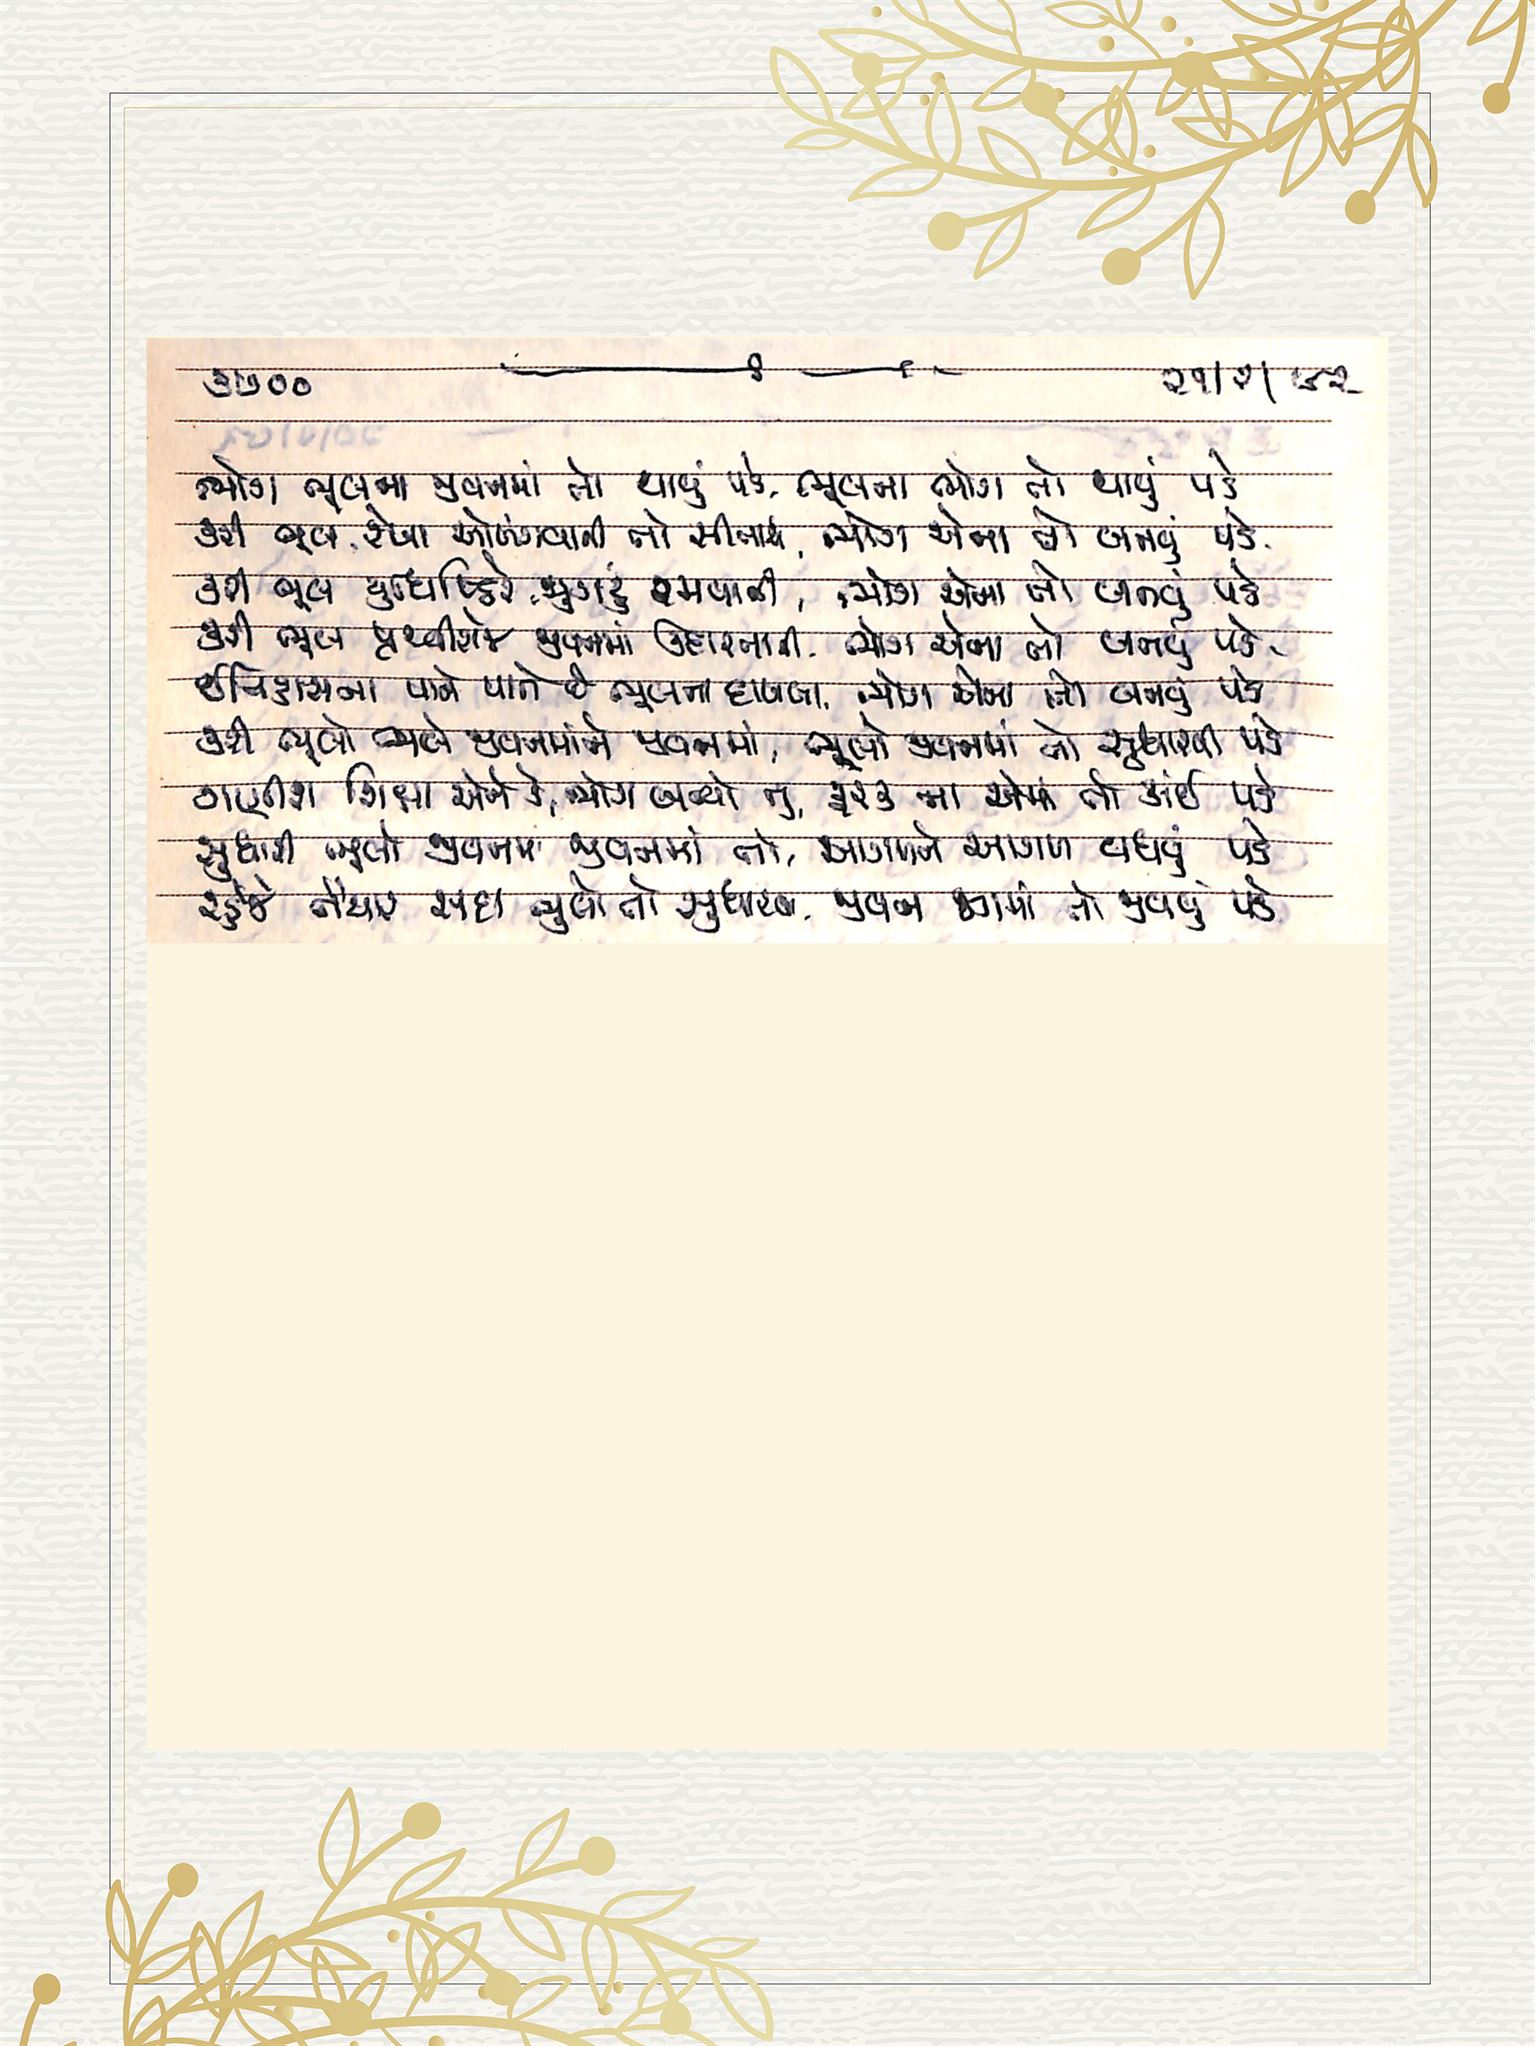 ૩૭૦૦ ૨૧/૨/૯૨
ભોગ ભૂલના જીવનમાં તો થાવું પડે, ભૂલના ભોગ તો થાવું પડે
કરી ભૂલ, રેખા ઓળંગવાની તો સીતાએ, ભોગ એના તો બનવું પડે.
કરી ભૂલ યુધિષ્ઠિરે જુગટું રમવાની, ભોગ એના તો બનવું પડે
કરી ભૂલ પૃથ્વીરાજે જીવનમાં ઉદારતાની. ભોગ એના તો બનવું પડે.
ઈતિહાસના પાને પાને છે ભૂલના દાખલા, ભોગ એના તો બનવું પડે
કરી ભૂલો ભલે જીવનમાંને જીવનમાં, ભૂલો જીવનમાં તો સુધારવી પડે
ગણીશ શિક્ષા એને કે, ભોગ બન્યો તું, ફરક ના એમાં તો કાંઈ પડે
સુધારી ભૂલો જીવનમાં જીવનમાં તો, આગળને આગળ વધવું પડે
રહેજે તૈયાર સદા ભુલો તો સુધારવા, જીવન જગમાં તો જીવવું પડે